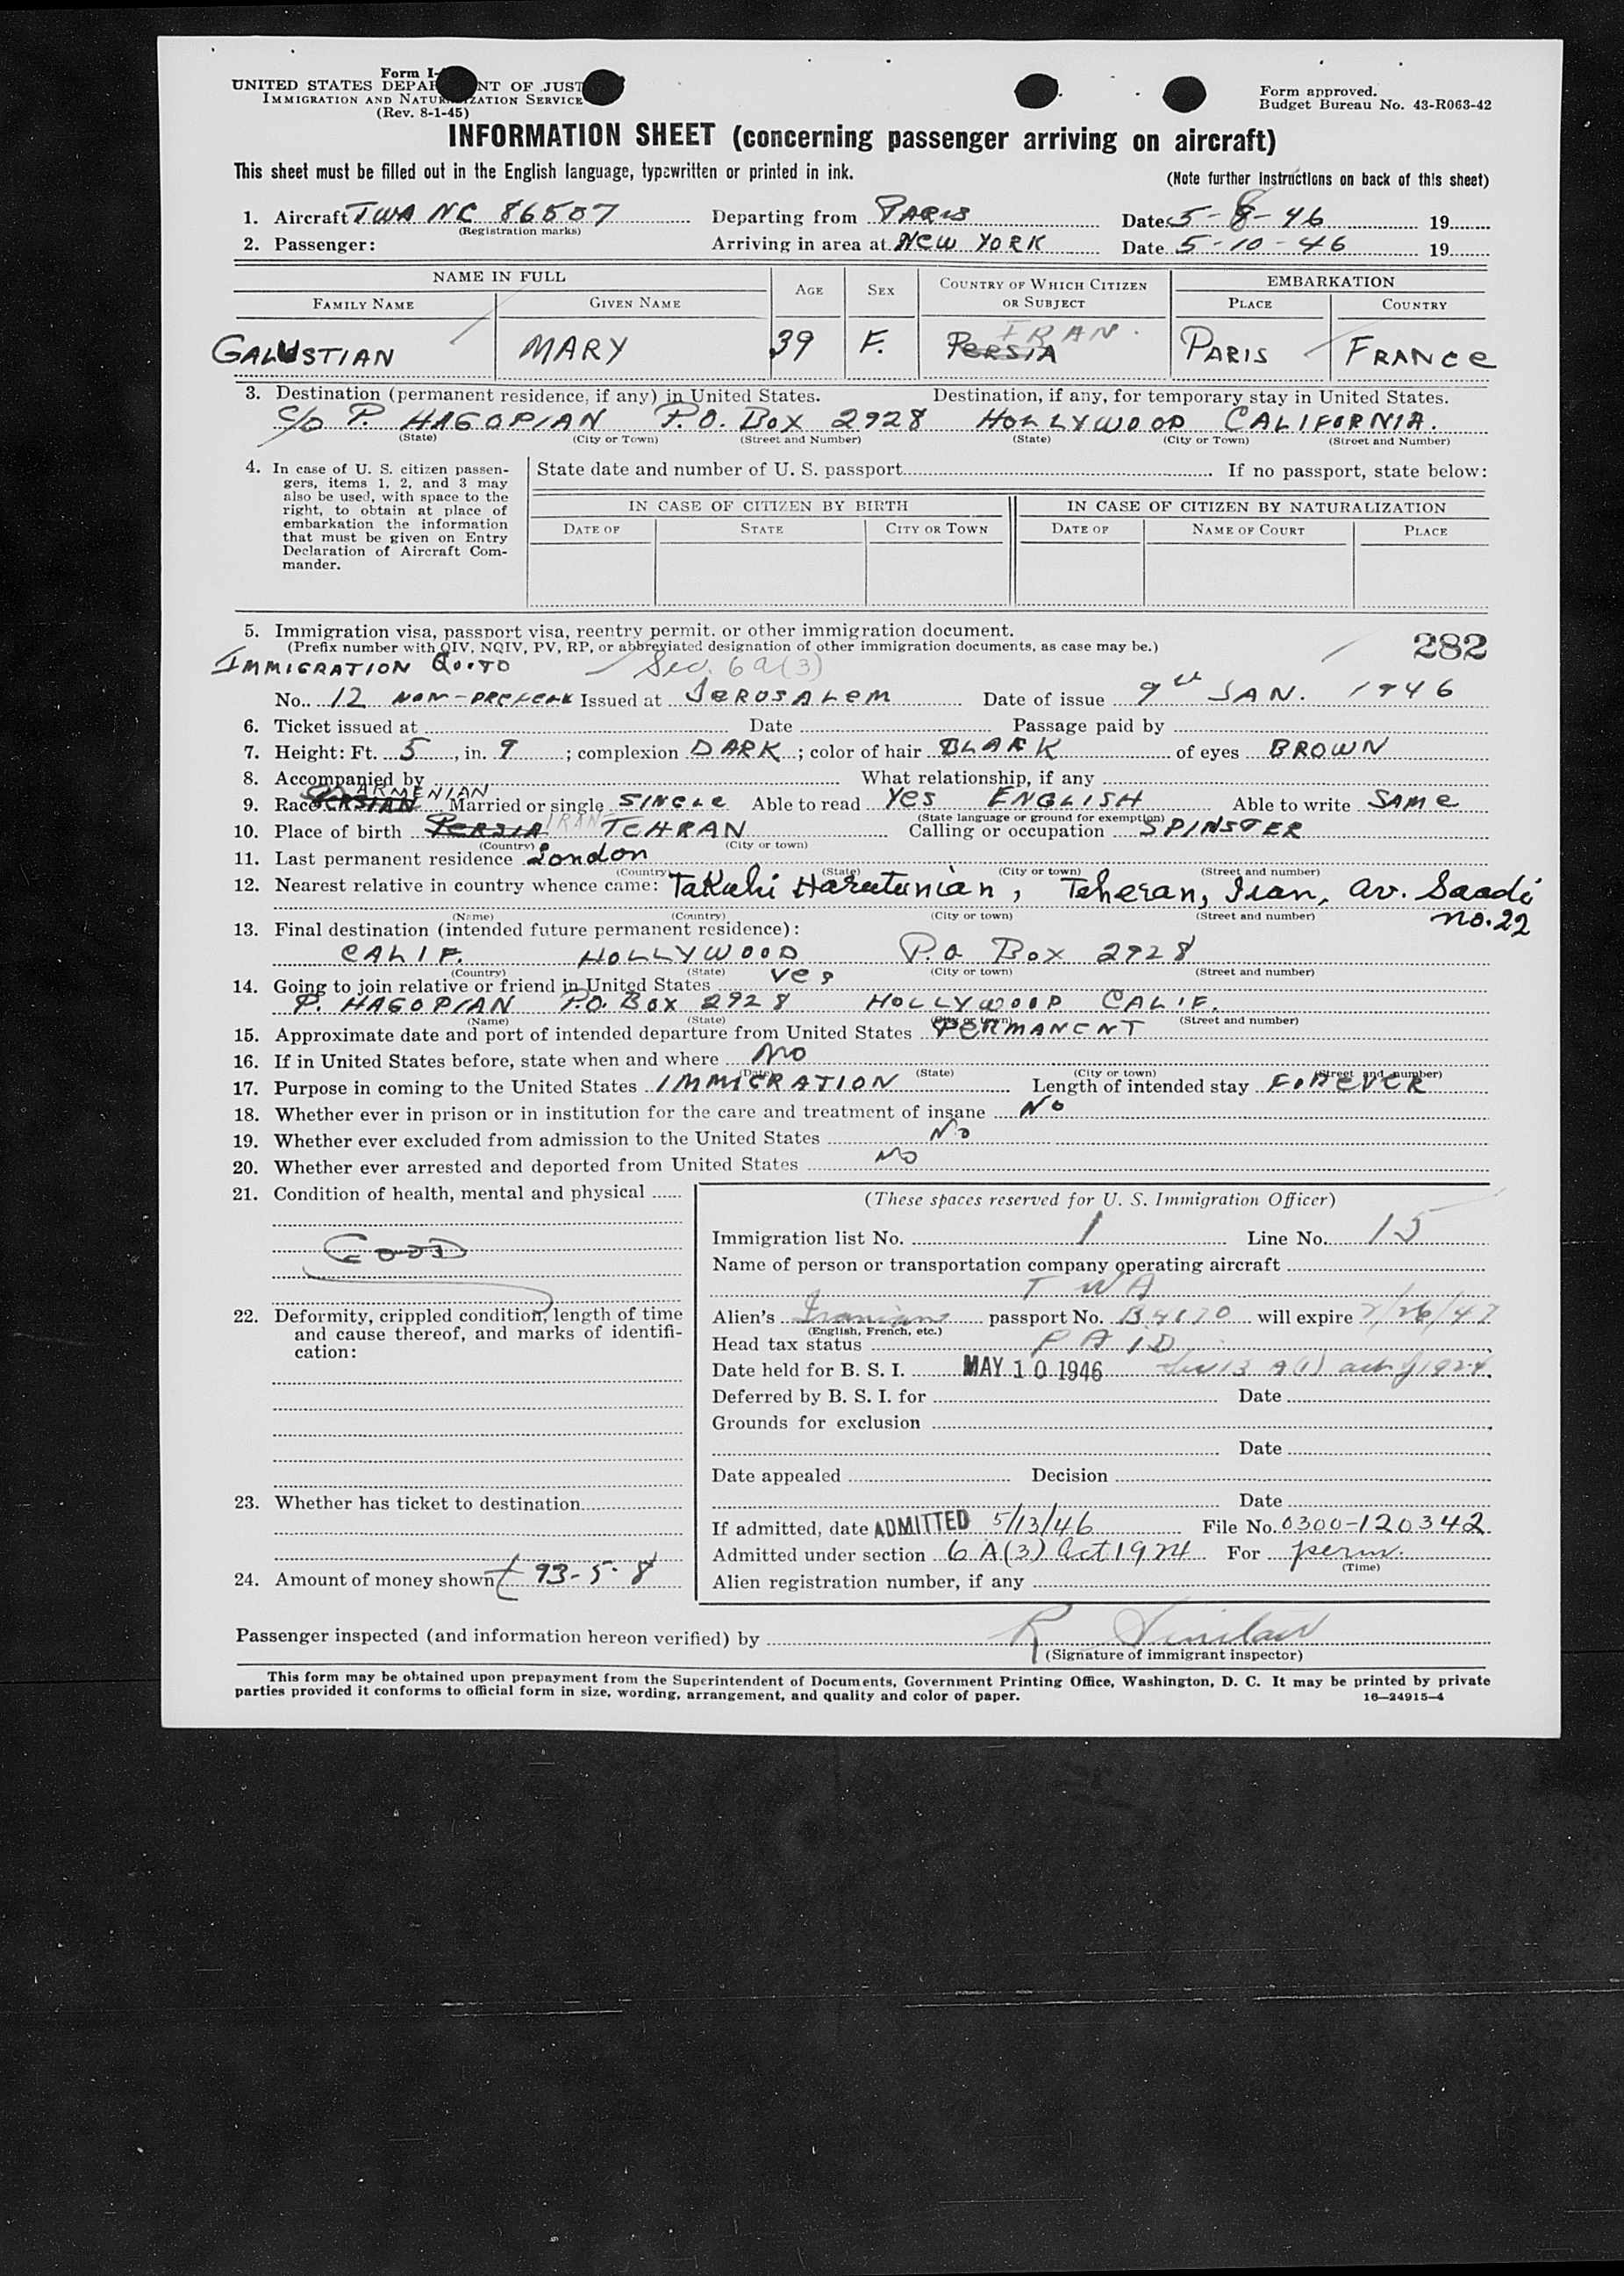 Form I-
UNITED STATES DEPAR NT OF JUST
IMMIGRATION AND NATUR ZATION SERVICE
(Rev. 8-1-45)
Form approved.
Budget Bureau No. 43-R063-42
INFORMATION SHEET (concerning passenger arriving on aircraft)
This sheet must be filled out in the English language, typewritten or printed in ink.
(Note further instructions on back of this sheet)
1. Aircraft TWA NC 86507 Departing from PARIS Date 5-8-46 19
(Registration marks)
2. Passenger: Arriving in area at NEW YORK Date 5-10-46 19
NAME IN FULL AGE SEX COUNTRY OF WHICH CITIZEN OR SUBJECT EMBARKATION
FAMILY NAME GIVEN NAME PLACE COUNTRY
IRAN.
GALUSTIAN MARY 39 F. PERSIA PARIS FRANCE
3. Destination (permanent residence, if any) in United States. Destination, if any, for temporary stay in United States.
C/O P. HAGOPIAN P.O. BOX 2928 HOLLYWOOD CALIFORNIA.
(State) (City or Town) (Street and Number) (State) (City or Town) (Street and Number)
4. In case of U. S. citizen passen-
gers, items 1, 2, and 3 may
also be used, with space to the
right, to obtain at place of
embarkation the information
that must be given on Entry
Declaration of Aircraft Com-
mander.
State date and number of U. S. passport If no passport, state below:
IN CASE OF CITIZEN BY BIRTH IN CASE OF CITIZEN BY NATURALIZATION
DATE OF STATE CITY OR TOWN DATE OF NAME OF COURT PLACE
5. Immigration visa, passport visa, reentry permit, or other immigration document.
(Prefix number with QIV, NQIV, PV, RP, or abbreviated designation of other immigration documents, as case may be.)
282
IMMIGRATION QUOTO Sec. 6a(3)
No. 12 NON-PREFERE Issued at JERUSALEM Date of issue 9th JAN. 1946
6. Ticket issued at Date Passage paid by
7. Height: Ft. 5, in. 9; complexion DARK; color of hair BLACK of eyes BROWN
8. Accompanied by What relationship, if any
ARMENIAN
9. Race PERSIAN Married or single SINGLE Able to read YES ENGLISH Able to write SAME
(State language or ground for exemption)
10. Place of birth PERSIA IRAN TEHRAN Calling or occupation SPINSTER
(Country) (City or town)
11. Last permanent residence London
(Country) (State) (City or town) (Street and number)
12. Nearest relative in country whence came: Takuhi Harutunian, Teheran, Iran, av. Saadi
no. 22
(Name) (Country) (City or town) (Street and number)
13. Final destination (intended future permanent residence):
CALIF. HOLLYWOOD P.O. BOX 2928
(Country) (State) (City or town) (Street and number)
14. Going to join relative or friend in United States yes
P. HAGOPIAN P.O. BOX 2928 HOLLYWOOD CALIF.
(Name) (State) (City or town) (Street and number)
15. Approximate date and port of intended departure from United States PERMANENT
16. If in United States before, state when and where NO
(Date) (State) (City or town) (Street and number)
17. Purpose in coming to the United States IMMIGRATION Length of intended stay FOREVER
18. Whether ever in prison or in institution for the care and treatment of insane NO
19. Whether ever excluded from admission to the United States NO
20. Whether ever arrested and deported from United States NO
21. Condition of health, mental and physical
GOOD
22. Deformity, crippled condition, length of time
and cause thereof, and marks of identifi-
cation:
23. Whether has ticket to destination
24. Amount of money shown £ 93-5-8
(These spaces reserved for U. S. Immigration Officer)
Immigration list No. 1 Line No. 15
Name of person or transportation company operating aircraft
TWA
Alien's Iranian passport No. B4170 will expire 7/26/47
(English, French, etc.)
Head tax status PAID
Date held for B. S. I. MAY 10 1946 Sec 13 A(1) act of 1924
Deferred by B. S. I. for Date
Grounds for exclusion
Date
Date appealed Decision
Date
If admitted, date ADMITTED 5/13/46 File No. 0300-120342
Admitted under section 6 A(3) Act 1924 For perm.
(Time)
Alien registration number, if any
Passenger inspected (and information hereon verified) by R Sinclair
(Signature of immigrant inspector)
This form may be obtained upon prepayment from the Superintendent of Documents, Government Printing Office, Washington, D. C. It may be printed by private
parties provided it conforms to official form in size, wording, arrangement, and quality and color of paper. 16—24915-4